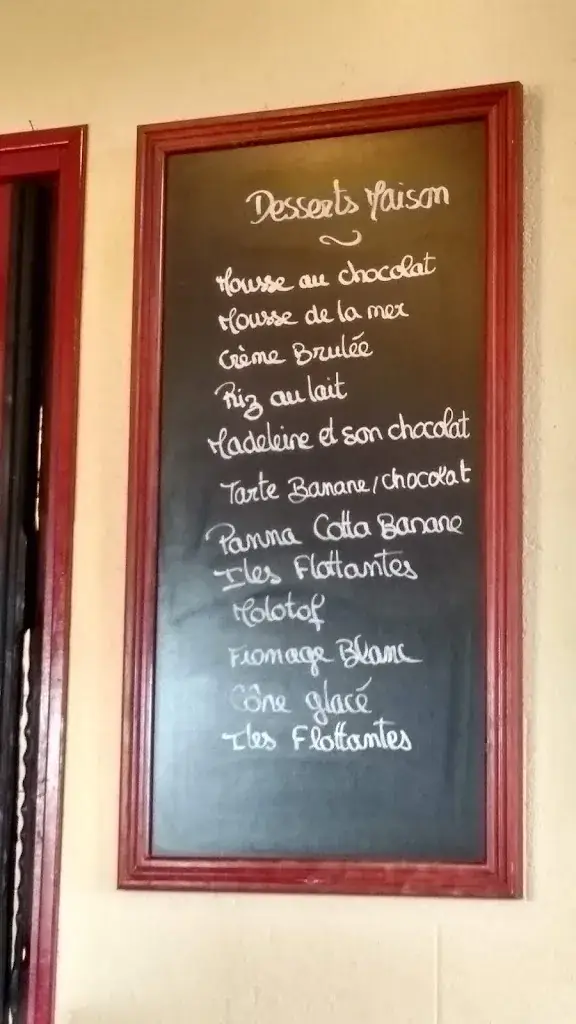 Desserts Maison
Mousse au chocolat
Mousse de la mer
Crème Brulée
Riz au lait
Madeleine et son chocolat
Tarte Banane/chocolat
Panna Cotta Banane
Iles Flottantes
Molotof
Fromage Blanc
Cône glacé
Iles Flottantes